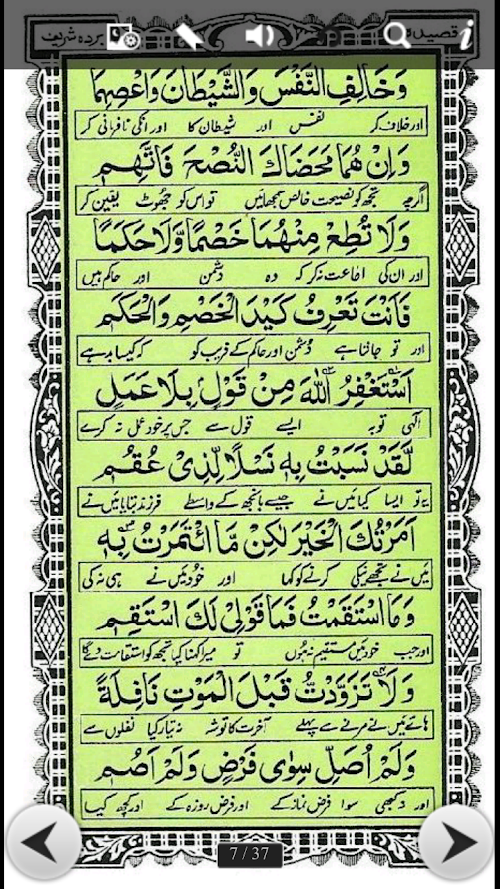 قصیدہ بردہ شریف
وَخَالِفِ النَّفْسَ وَالشَّيْطَانَ وَاعْصِهِمَا
اور خلاف کر نفس اور شیطان کا اور انکی نافرمانی کر
وَاِنْ هُمَا مَحَضَاكَ النُّصْحَ فَاتَّهِمِ
اگرچہ تجھ کو نصیحت خالص سمجھائیں تو اس کو جھوٹ یقین کر
وَلَا تُطِعْ مِنْهُمَا خَصْمًا وَّلَا حَكَمًا
اور ان کی اطاعت نہ کر کہ وہ دشمن اور حاکم ہیں
فَاَنْتَ تَعْرِفُ كَيْدَ الْخَصْمِ وَالْحَكَمِ
اور تو جانتا ہے دشمن اور حاکم کے فریب کو کہ کیسا بد ہے
اَسْتَغْفِرُ اللّٰهَ مِنْ قَوْلٍ بِلَا عَمَلٍ
الٰہی توبہ ایسے قول سے جس پر خود عمل نہ کرے
لَقَدْ نَسَبْتُ بِهٖ نَسْلًا لِّذِىْ عُقُمِ
یہ تو ایسا کیا میں نے جیسے بانجھ کے واسطے فرزند بتایا میں نے
اَمَرْتُكَ الْخَيْرَ لٰكِنْ مَّا ائْتَمَرْتُ بِهٖ
میں نے تجھے نیکی کرنے کو کہا اور خود میں نے ہی نہ کی
وَمَا اسْتَقَمْتُ فَمَا قَوْلِىْ لَكَ اسْتَقِمِ
اور جب خود میں مستقیم نہ ہوں تو میرا کہنا کیا تجھ کو استقامت دے گا
وَلَا تَزَوَّدْتُّ قَبْلَ الْمَوْتِ نَافِلَةً
ہائے میں نے مرنے سے پہلے آخرت کا توشہ نہ تیار کیا نفلوں سے
وَلَمْ اُصَلِّ سِوٰى فَرْضٍ وَّلَمْ اَصُمِ
اور نہ کبھی سوا فرض نماز کے اور فرض روزہ کے اور کچھ کیا
7 / 37